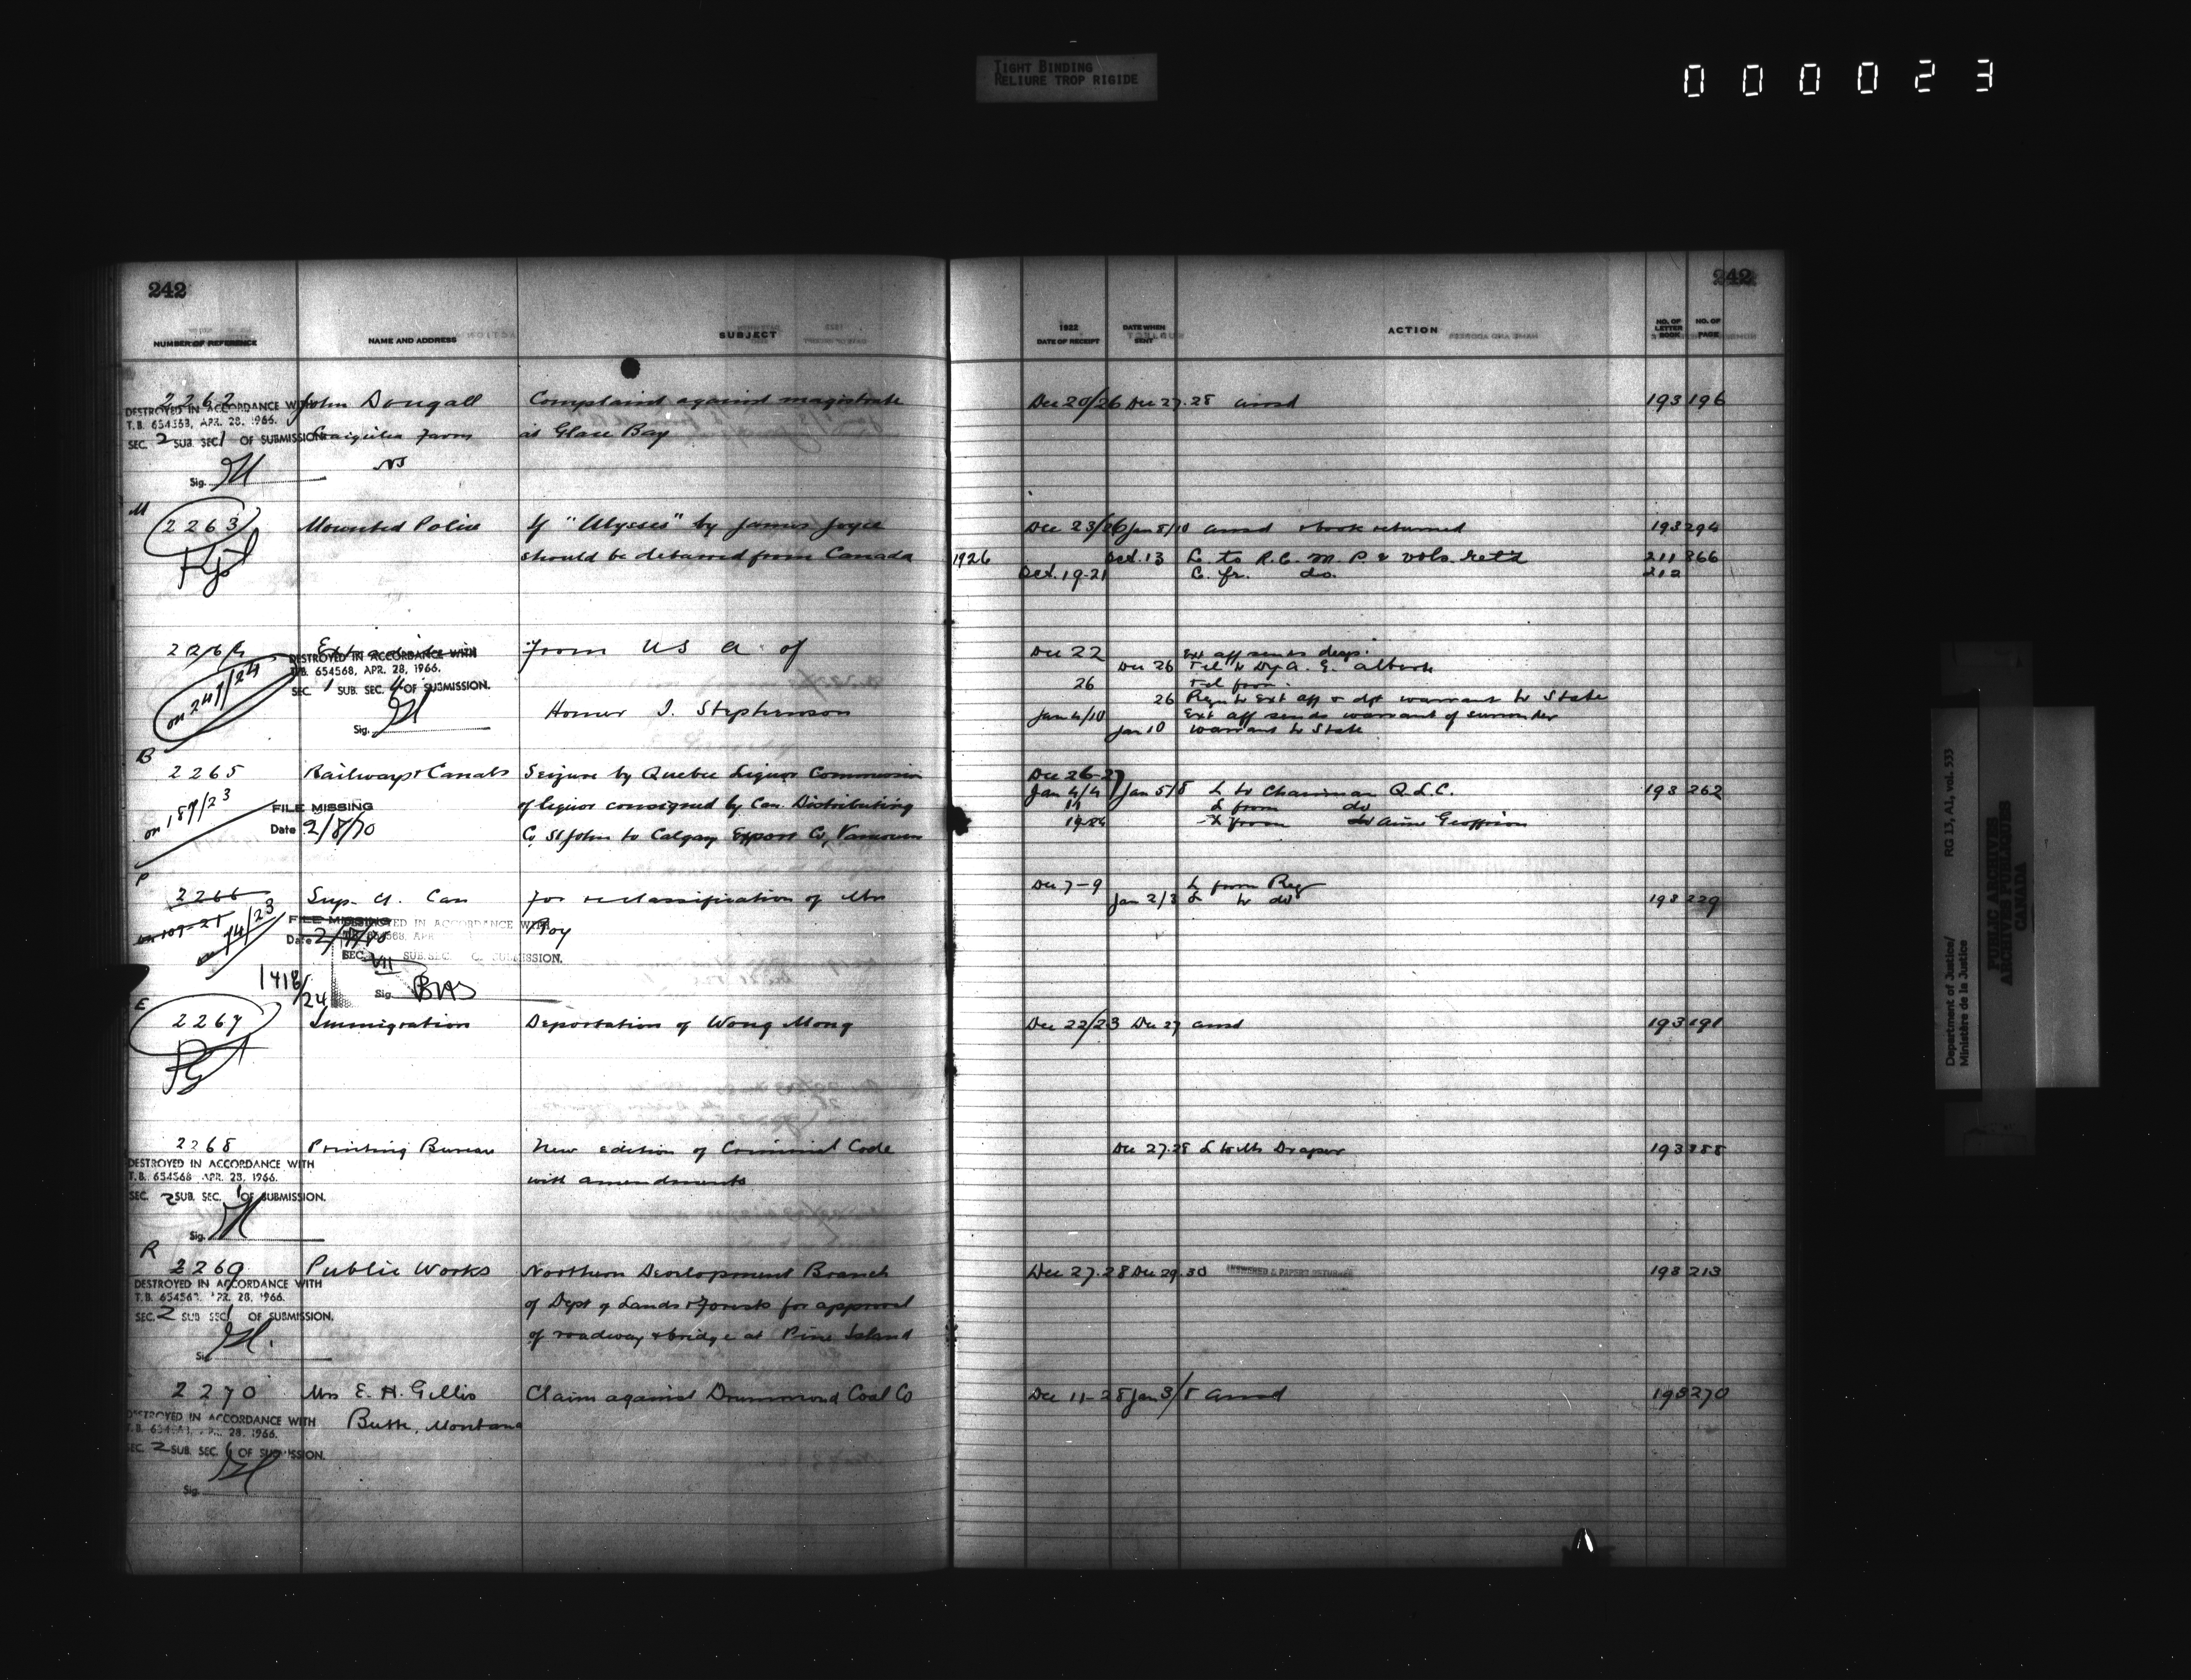 TIGHT BINDING
RELIURE TROP RIGIDE
000023
242
242
NUMBER OF REFERENCE
NAME AND ADDRESS
SUBJECT
1922
DATE OF RECEIPT
DATE WHEN
SENT
ACTION
NO. OF
LETTER
BOOK
NO. OF
PAGE
2262 John Dougall Complaint against magistrate Dec 20/26 Dec 27.28 ansd 193 196
DESTROYED IN ACCORDANCE WITH
T.B. 654568, APR. 28, 1966.
SEC. 2 SUB. SEC 1 OF SUBMISSION
Farm at Glace Bay
NS
Sig.
M
2263 Mounted Police If "Ulysses" by James Joyce Dec 23/26 Jan 8/10 ansd & book returned 193 294
should be debarred from Canada 1926 Oct. 13 L. to R.C.M.P. & vols. ret'd 211 866
Oct. 19-21 C. fr. do. 212
2264 From USA of Dec 22 Ext aff sends desp.
DESTROYED IN ACCORDANCE WITH
T.B. 654568, APR. 28, 1966.
SEC. 1 SUB. SEC. 4 OF SUBMISSION.
on 249/24
Dec 26 Tel to Dy A. G. Alberta
26 Tel from
26 Ext aff & dft warrant to State
Homer J. Stephenson Jan 4/10 Ext aff sends warrant of surrender
Sig. Jan 10 Warrant to State
B
2265 Railways & Canals Seizure by Quebec Liquor Commission Dec 26-27
on 187/23 FILE MISSING of liquor consigned by Can. Distributing Jan 4/4 Jan 5/8 L to Chairman Q.L.C. 193 262
Date 2/8/70 11 L from do
Co, St John to Calgary Export Co, Vancouver 19-24 L from Aime Geoffrion
P
2266 Sup. Ct. Can for reclassification of Mrs Dec 7-9 L from Reg
Jan 2/3 L to do 193 229
74/23 FILE MISSING
Date
Roy
DESTROYED IN ACCORDANCE WITH
SEC. VII SUB. SEC. OF SUBMISSION.
1418/24
Sig.
E
2267 Immigration Deportation of Wong Mong Dec 22/23 Dec 27 ansd 193 191
2268 Printing Bureau New edition of Criminal Code Dec 27.28 L to Mr Draper 193
DESTROYED IN ACCORDANCE WITH
T.B. 654568 APR. 28, 1966.
with amendments
SEC. 2 SUB. SEC. 1 OF SUBMISSION.
Sig.
R
2269 Public Works Northern Development Branch Dec 27.28 Dec 29.30 ANSWERED & PAPERS RETURNED 193 213
DESTROYED IN ACCORDANCE WITH
T.B. 654568, APR. 28, 1966.
of Dept of Lands & Forests for approval
SEC. 2 SUB SEC 1 OF SUBMISSION.
of roadway & bridge at Pine Island
Sig.
2270 Mrs E. H. Gillis Claim against Drummond Coal Co Dec 11-28 Jan 3/8 ansd 193 270
DESTROYED IN ACCORDANCE WITH
Butte, Montana
28, 1966.
SEC. 2 SUB. SEC. OF SUBMISSION.
Sig.
Department of Justice/
Ministère de la Justice
RG 13, A1, vol. 533
PUBLIC ARCHIVES
ARCHIVES PUBLIQUES
CANADA